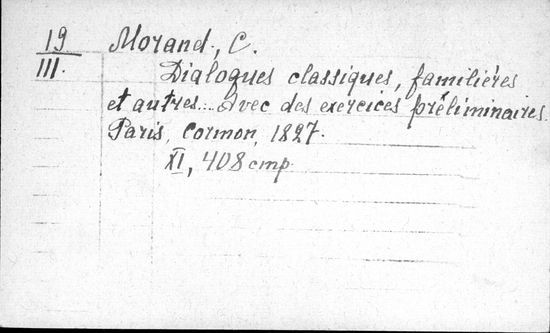 19
III.
Morand, C.
Dialogues classiques, familières
et autres... Avec des exercices préliminaires.
Paris, Cormon, 1827.
XI, 408 cmp